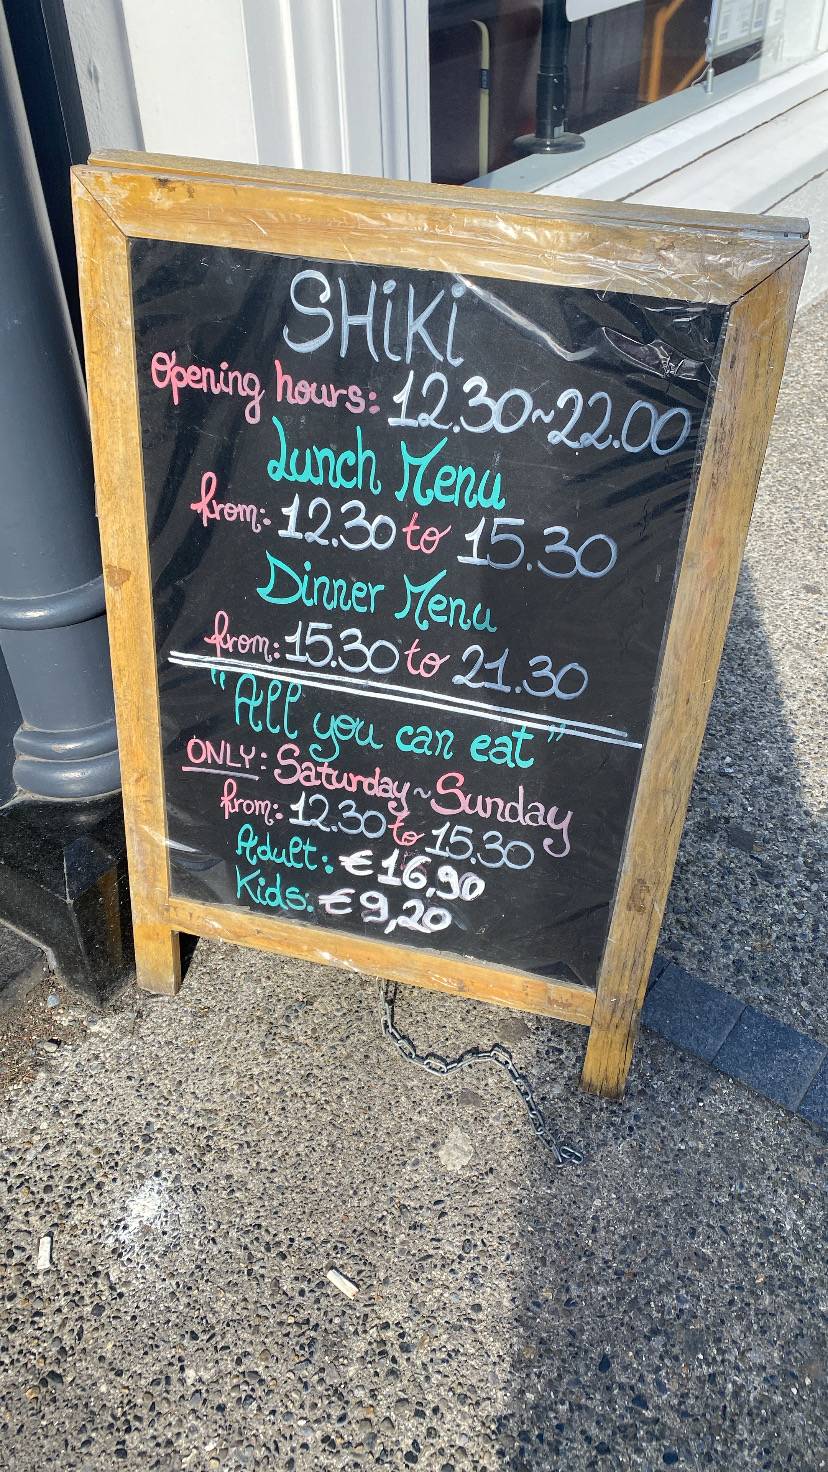 SHiKi
Opening hours: 12.30~22.00
Lunch Menu
from: 12.30 to 15.30
Dinner Menu
from: 15.30 to 21.30
"All you can eat"
ONLY: Saturday~Sunday
from: 12.30 to 15.30
Adult: €16,90
Kids: €9,20